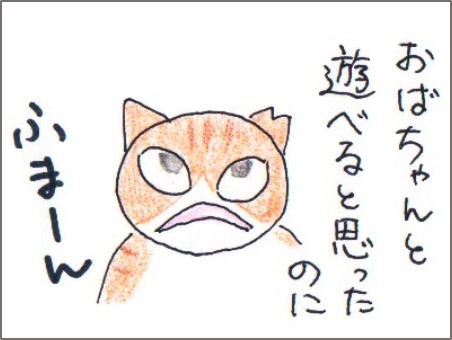 おばちゃんと
遊べると思った
のに
ふまーん